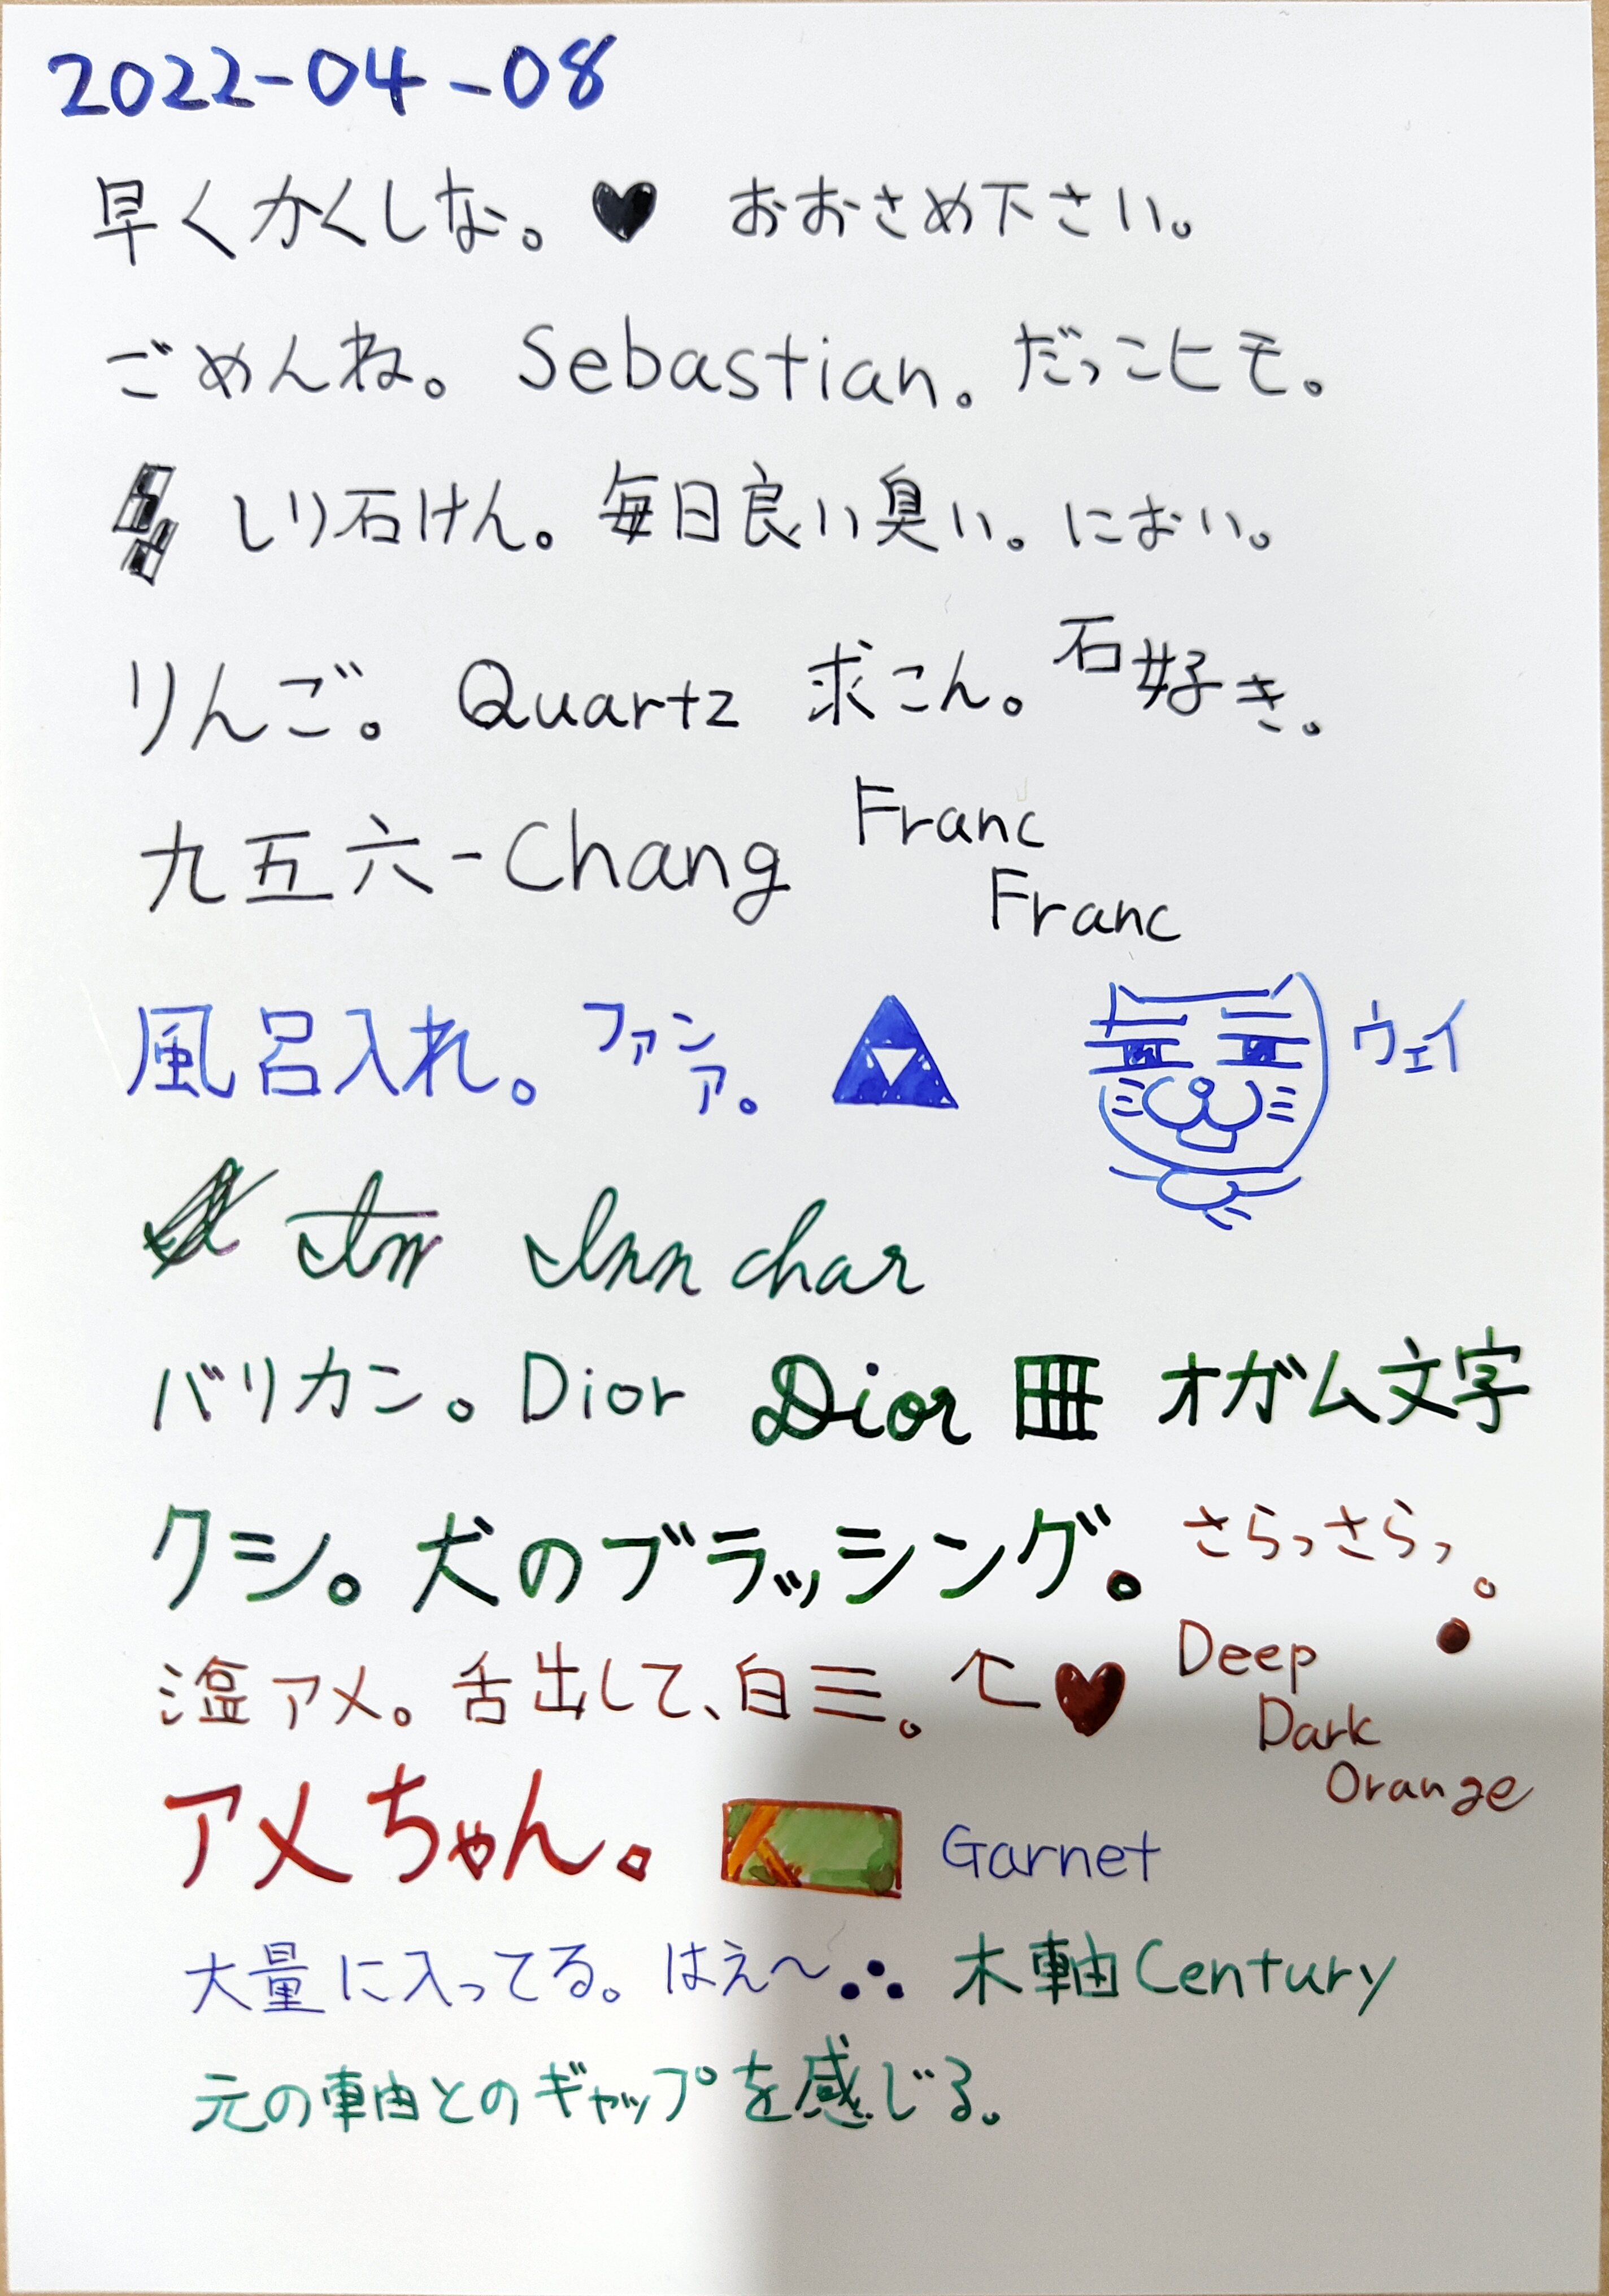 2022-04-08
早くかくしな。♥ おおさめ下さい。
ごめんね。 Sebastian. だっこヒモ。
しり石けん。毎日良い臭い。におい。
りんご。 Quartz 求こん。石好き。
九五六-Chang Franc
Franc
風呂入れ。 ファン
ア。
ウェイ
Inn char
バリカン。Dior Dior 田 オガム文字
クシ。犬のブラッシング。さらっさらっ。
塩アメ。舌出して、白三。 ♥ Deep
Dark
Orange
アメちゃん。 Garnet
大量に入ってる。はえ〜 木軸Century
元の軸とのギャップを感じる。